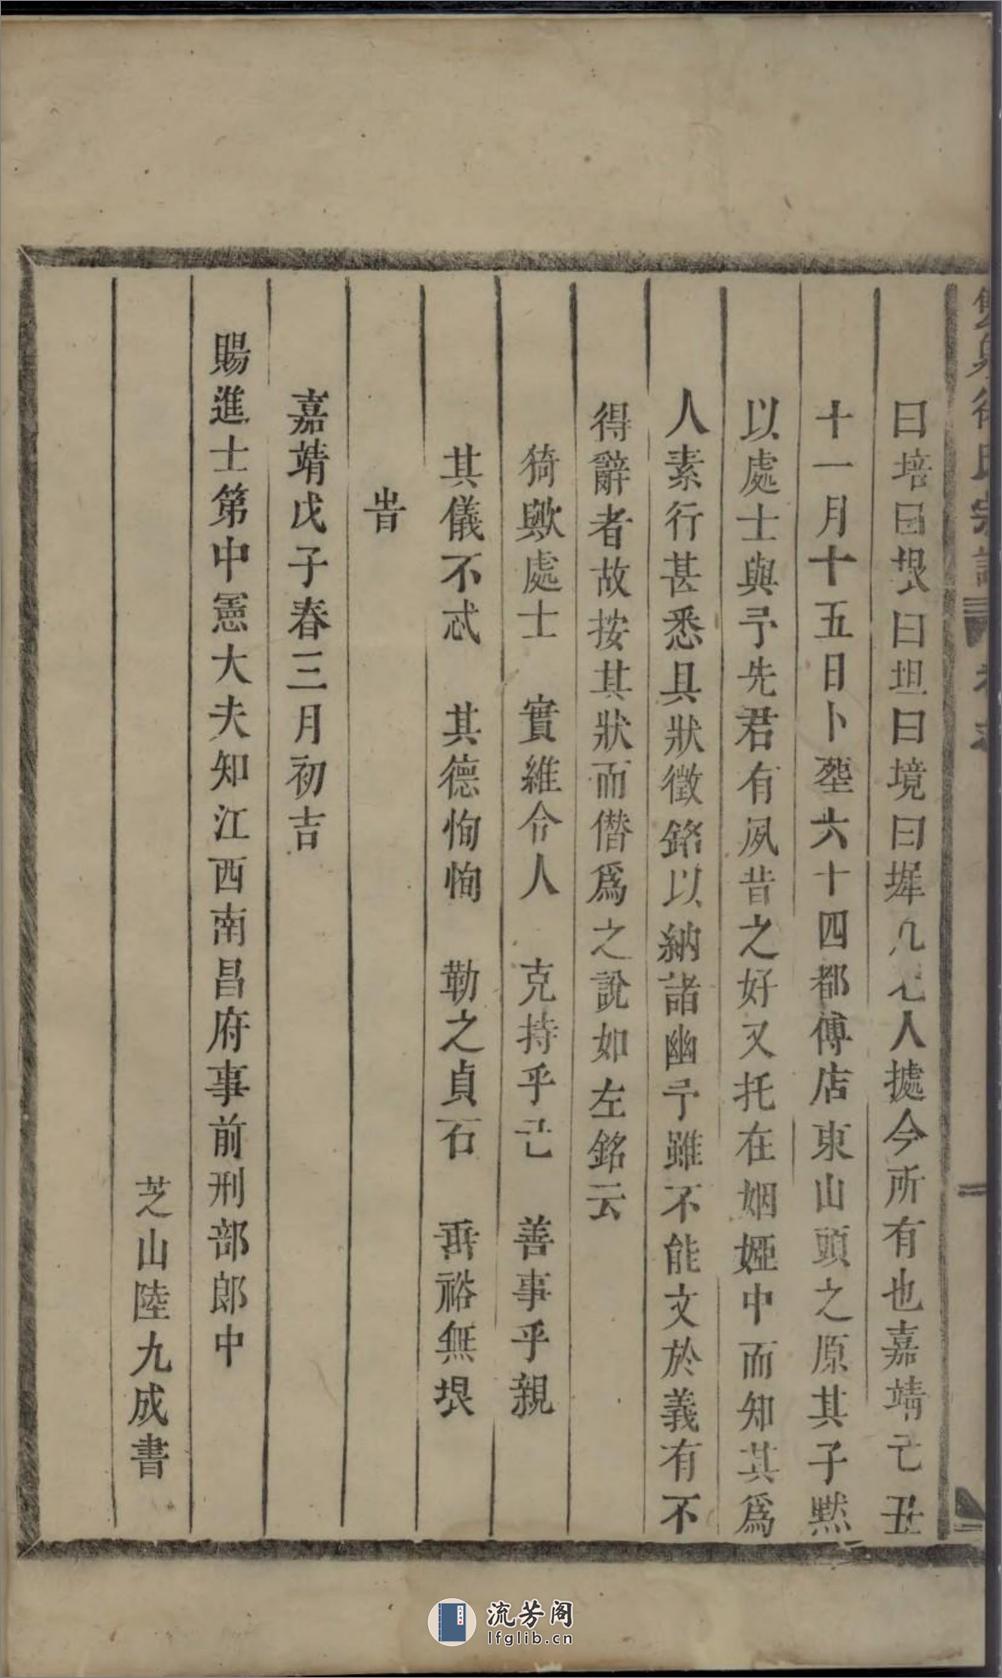 曰培曰垠曰坦曰境曰墀凡七人㨿今所有也嘉靖己丑
十一月十五日卜塟六十四都傅店東山頭之原其子黙
以處士與予先君有夙昔之好又托在姻婭中而知其爲
人素行甚悉具狀徵銘以納諸幽予雖不能文於義有不
得辭者故按其狀而僭爲之說如左銘云
猗歟處士 實維令人 克持乎己 善事乎親
其儀不忒 其德恂恂 勒之貞石 垂裕無垠
旹
嘉靖戊子春三月初吉
賜進士第中憲大夫知江西南昌府事前刑部郎中
芝山陸九成書
流芳阁
lfglib.cn